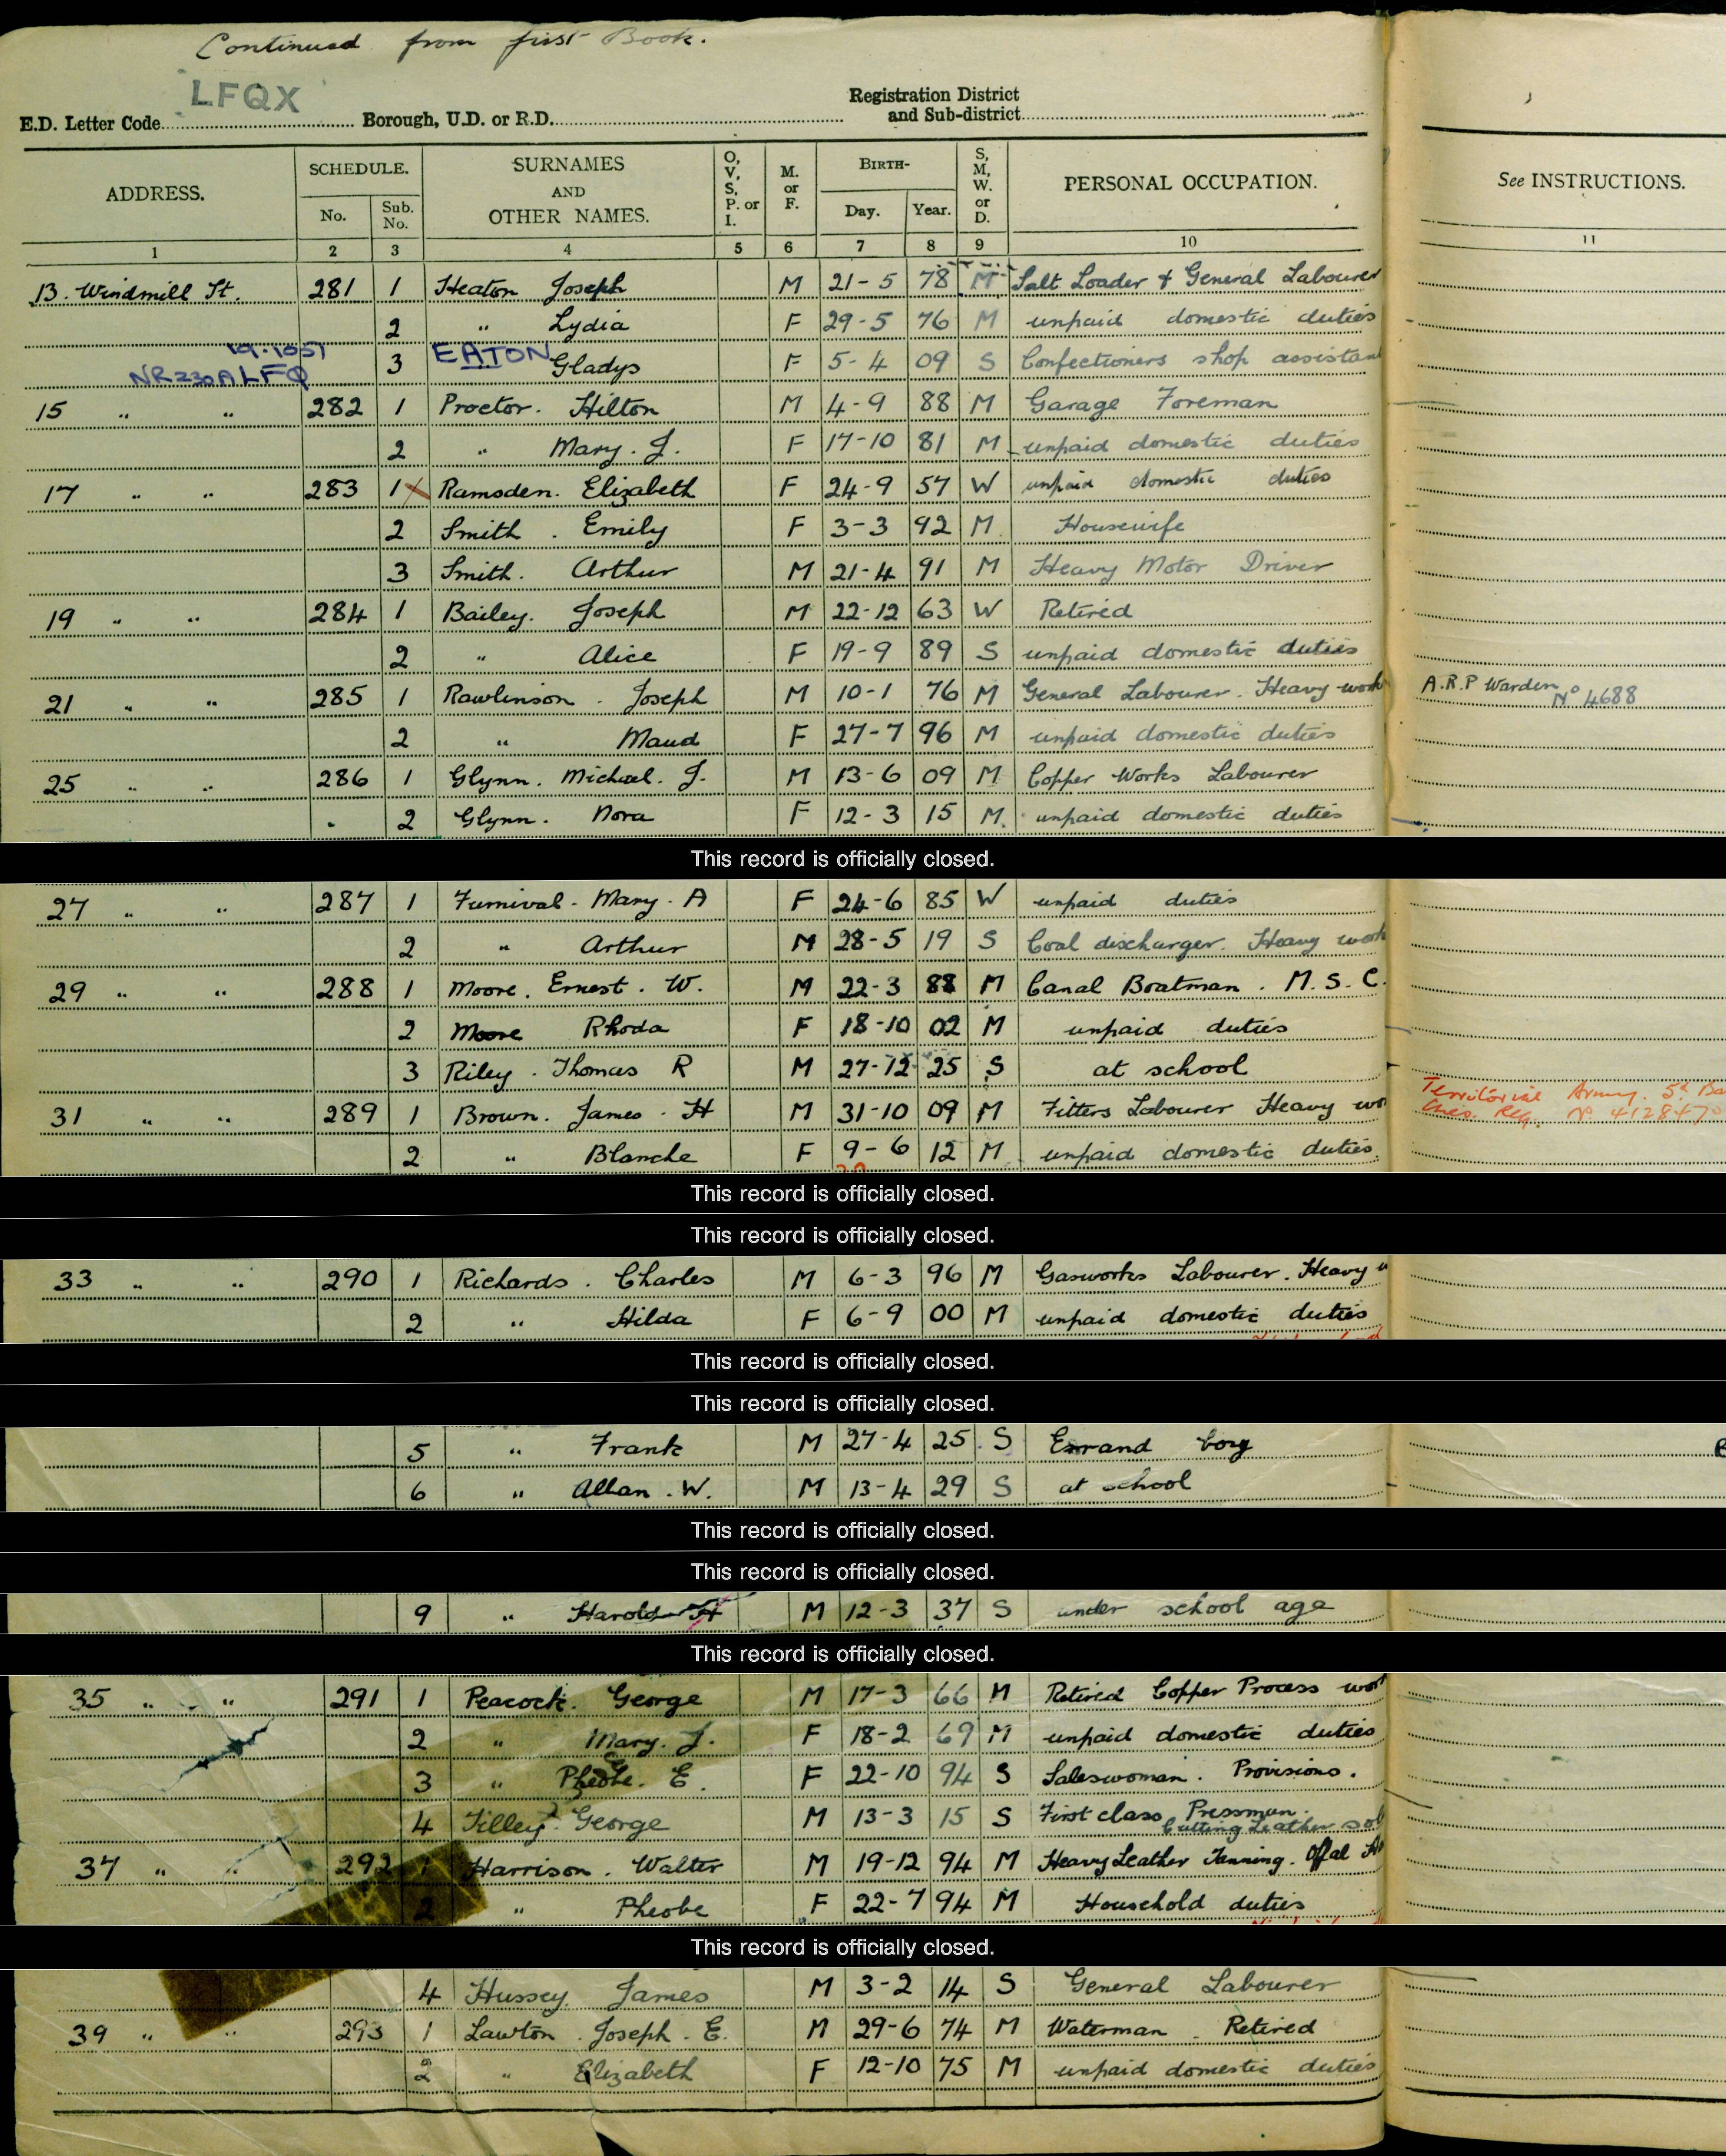 Continued from first Book.
LFQX
E.D. Letter Code Borough, U.D. or R.D. Registration District and Sub-district
ADDRESS. SCHEDULE. No. Sub. No. SURNAMES AND OTHER NAMES. O, V, S, P. or I. M. or F. BIRTH- Day. Year. S, M, W. or D. PERSONAL OCCUPATION. See INSTRUCTIONS.
1 2 3 4 5 6 7 8 9 10 11
13. Windmill St. 281 1 Heaton Joseph M 21-5 78 M Salt Loader & General Labourer
2 " Lydia F 29-5 76 M unpaid domestic duties
NR230A LFQ 3 EATON " Gladys F 5-4 09 S Confectioners shop assistan
15 " " 282 1 Proctor. Hilton M 4-9 88 M Garage Foreman
2 " Mary. J. F 17-10 81 M unpaid domestic duties
17 " " 283 1 Ramsden. Elizabeth F 24-9 57 W unpaid domestic duties
2 Smith. Emily F 3-3 92 M Housewife
3 Smith. Arthur M 21-4 91 M Heavy Motor Driver
19 " " 284 1 Bailey. Joseph M 22-12 63 W Retired
2 " Alice F 19-9 89 S unpaid domestic duties
21 " " 285 1 Rawlinson. Joseph M 10-1 76 M General Labourer. Heavy work A.R.P Warden No 4688
2 " Maud F 27-7 96 M unpaid domestic duties
25 " " 286 1 Glynn. Michael. J. M 13-6 09 M Copper Works Labourer
2 Glynn. Nora F 12-3 15 M. unpaid domestic duties
This record is officially closed.
27 " " 287 1 Furnival - Mary. A F 24-6 85 W unpaid duties
2 " Arthur M 28-5 19 S Coal discharger. Heavy work
29 " " 288 1 Moore. Ernest. W. M 22-3 88 M Canal Boatman. M.S.C.
2 Moore Rhoda F 18-10 02 M unpaid duties
3 Riley. Thomas R M 27-12 25 S at school
31 " " 289 1 Brown. James. H M 31-10 09 M Fitters Labourer Heavy wo Territorial Army. 5th Ba Ches. Reg. No 4128470
2 " Blanche F 9-6 12 M unpaid domestic duties.
This record is officially closed.
This record is officially closed.
33 " " 290 1 Richards. Charles M 6-3 96 M Gasworks Labourer. Heavy w
2 " Hilda F 6-9 00 M unpaid domestic duties
This record is officially closed.
This record is officially closed.
5 " Frank M 27-4 25 S Errand boy
6 " Allan. W. M 13-4 29 S at school
This record is officially closed.
This record is officially closed.
9 " Harold H M 12-3 37 S under school age
This record is officially closed.
35 " " 291 1 Peacock. George M 17-3 66 M Retired Copper Process wor
2 " Mary. J. F 18-2 69 M unpaid domestic duties
3 " Pheobe. E. F 22-10 94 S Saleswoman. Provisions.
4 Tilley George M 13-3 15 S First class Pressman. Cutting Leather sol
37 " " 292 1 Harrison. Walter M 19-12 94 M Heavy Leather Tanning. Offal
2 " Pheobe F 22-7 94 M Household duties
This record is officially closed.
4 Hussey James M 3-2 14 S General Labourer
39 " " 293 1 Lawton. Joseph. E. M 29-6 74 M Waterman. Retired
2 " Elizabeth F 12-10 75 M unpaid domestic duties